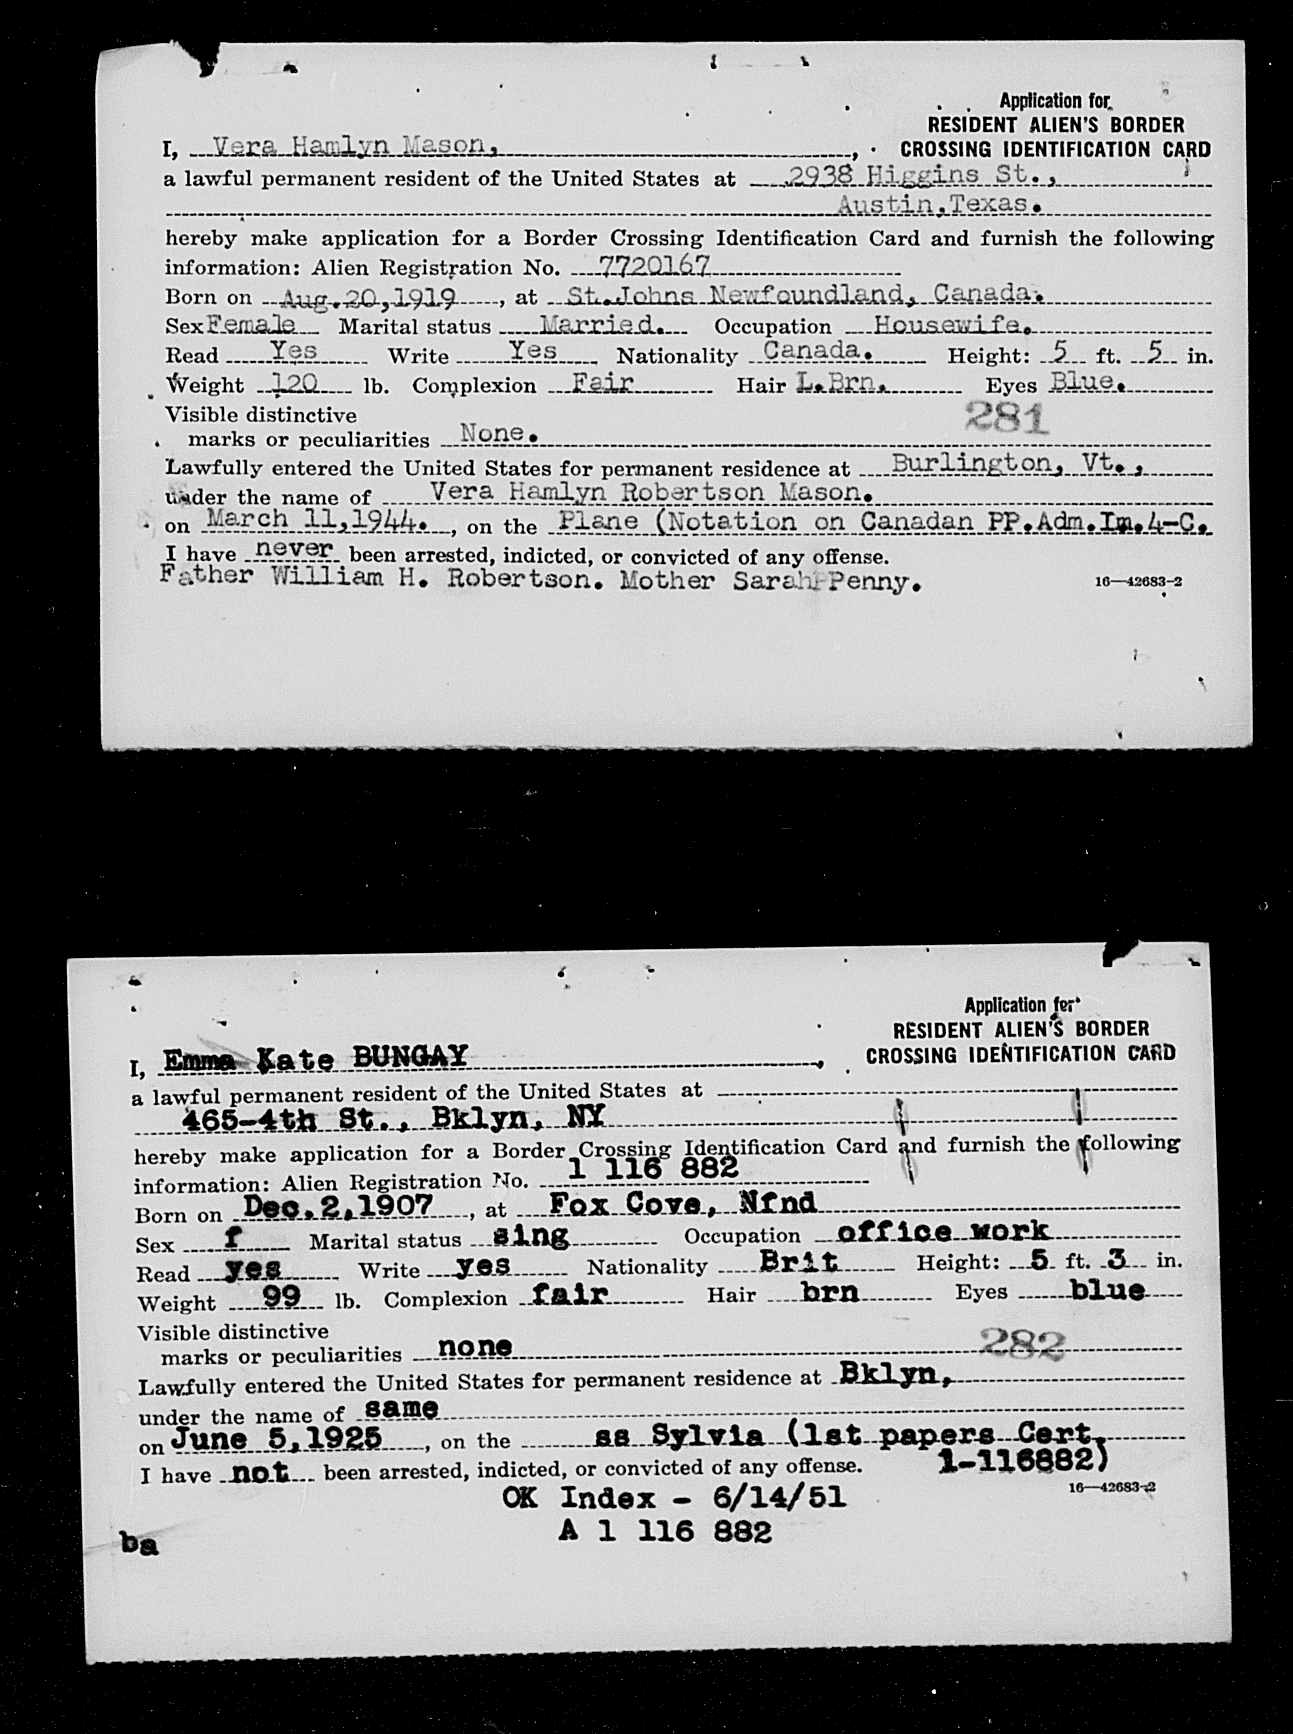 Application for
RESIDENT ALIEN'S BORDER
I, Vera Hamlyn Mason, , CROSSING IDENTIFICATION CARD
a lawful permanent resident of the United States at 2938 Higgins St.,
Austin,Texas.
hereby make application for a Border Crossing Identification Card and furnish the following
information: Alien Registration No. 7720167
Born on Aug.20,1919, at St.Johns Newfoundland, Canada.
Sex Female Marital status Married. Occupation Housewife.
Read Yes Write Yes Nationality Canada. Height: 5 ft. 5 in.
Weight 120 lb. Complexion Fair Hair L.Brn. Eyes Blue.
Visible distinctive 281
marks or peculiarities None.
Lawfully entered the United States for permanent residence at Burlington, Vt.,
under the name of Vera Hamlyn Robertson Mason.
on March 11,1944. , on the Plane (Notation on Canadan PP.Adm.Im.4-C.
I have never been arrested, indicted, or convicted of any offense.
Father William H. Robertson. Mother Sarah Penny. 16—42683-2
Application for
RESIDENT ALIEN'S BORDER
I, Emma Kate BUNGAY , CROSSING IDENTIFICATION CARD
a lawful permanent resident of the United States at
465-4th St., Bklyn, NY
hereby make application for a Border Crossing Identification Card and furnish the following
information: Alien Registration No. 1 116 882
Born on Dec.2,1907 , at Fox Cove, Nfnd
Sex f Marital status sing Occupation office work
Read yes Write yes Nationality Brit Height: 5 ft. 3 in.
Weight 99 lb. Complexion fair Hair brn Eyes blue
Visible distinctive
marks or peculiarities none 282
Lawfully entered the United States for permanent residence at Bklyn,
under the name of same
on June 5,1925 , on the ss Sylvia (1st papers Cert.
I have not been arrested, indicted, or convicted of any offense. 1-116882)
OK Index - 6/14/51 16—42683-2
A 1 116 882
ba